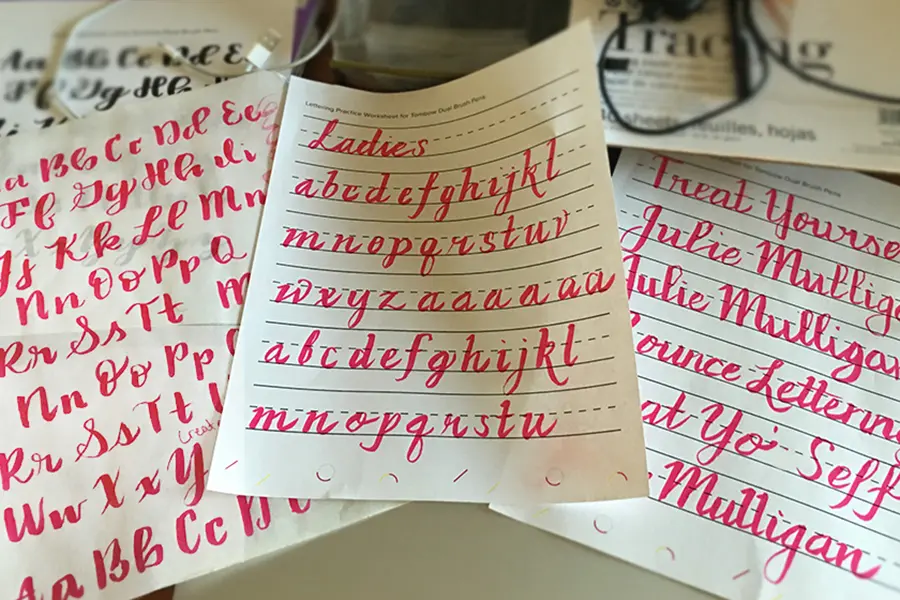 Aa Bb Cc Dd E
Tracing
sheets, feuilles, hojas
a Bb Cc Dd Ee
Ff Gg Hh Ii
Kk Ll Mm
Nn Oo Pp Q
Rr Ss Tt
Nn Oo Pp
Rr Ss Tt
Ww Xx Y
Aa Bb Cc D
Lettering Practice Worksheet for Tombow Dual Brush Pens
Ladies
abcdefghijkl
mnopqrstuv
wxyzaaaaaa
abcdefghijkl
mnopqrstu
for Tombow Dual Brush Pens
Treat Yourse
Julie Mulliga
Julie Mulligan
ounce Lettering
at Yo' Self
Mulligan